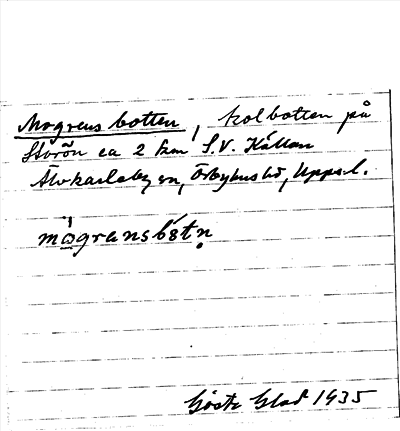 Mogrens botten, kolbotten på
Storön ca 2 km S.V. Källan
Älvkarleby sn, Örbyhus hd, Uppsal.
mogransbotn
Gösta Glad 1935